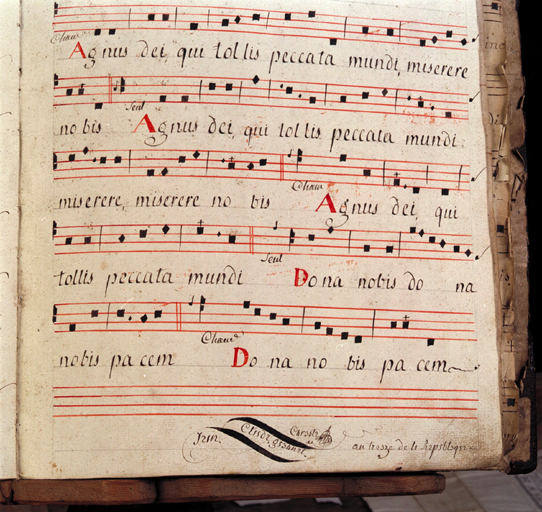 Chœur
Agnus dei, qui tollis peccata mundi, miserere
Seul
nobis Agnus dei, qui tollis peccata mundi:
Chœur
miserere, miserere nobis Agnus dei, qui
Seul
tollis peccata mundi Dona nobis dona
Chœur
nobis pacem Dona nobis pacem